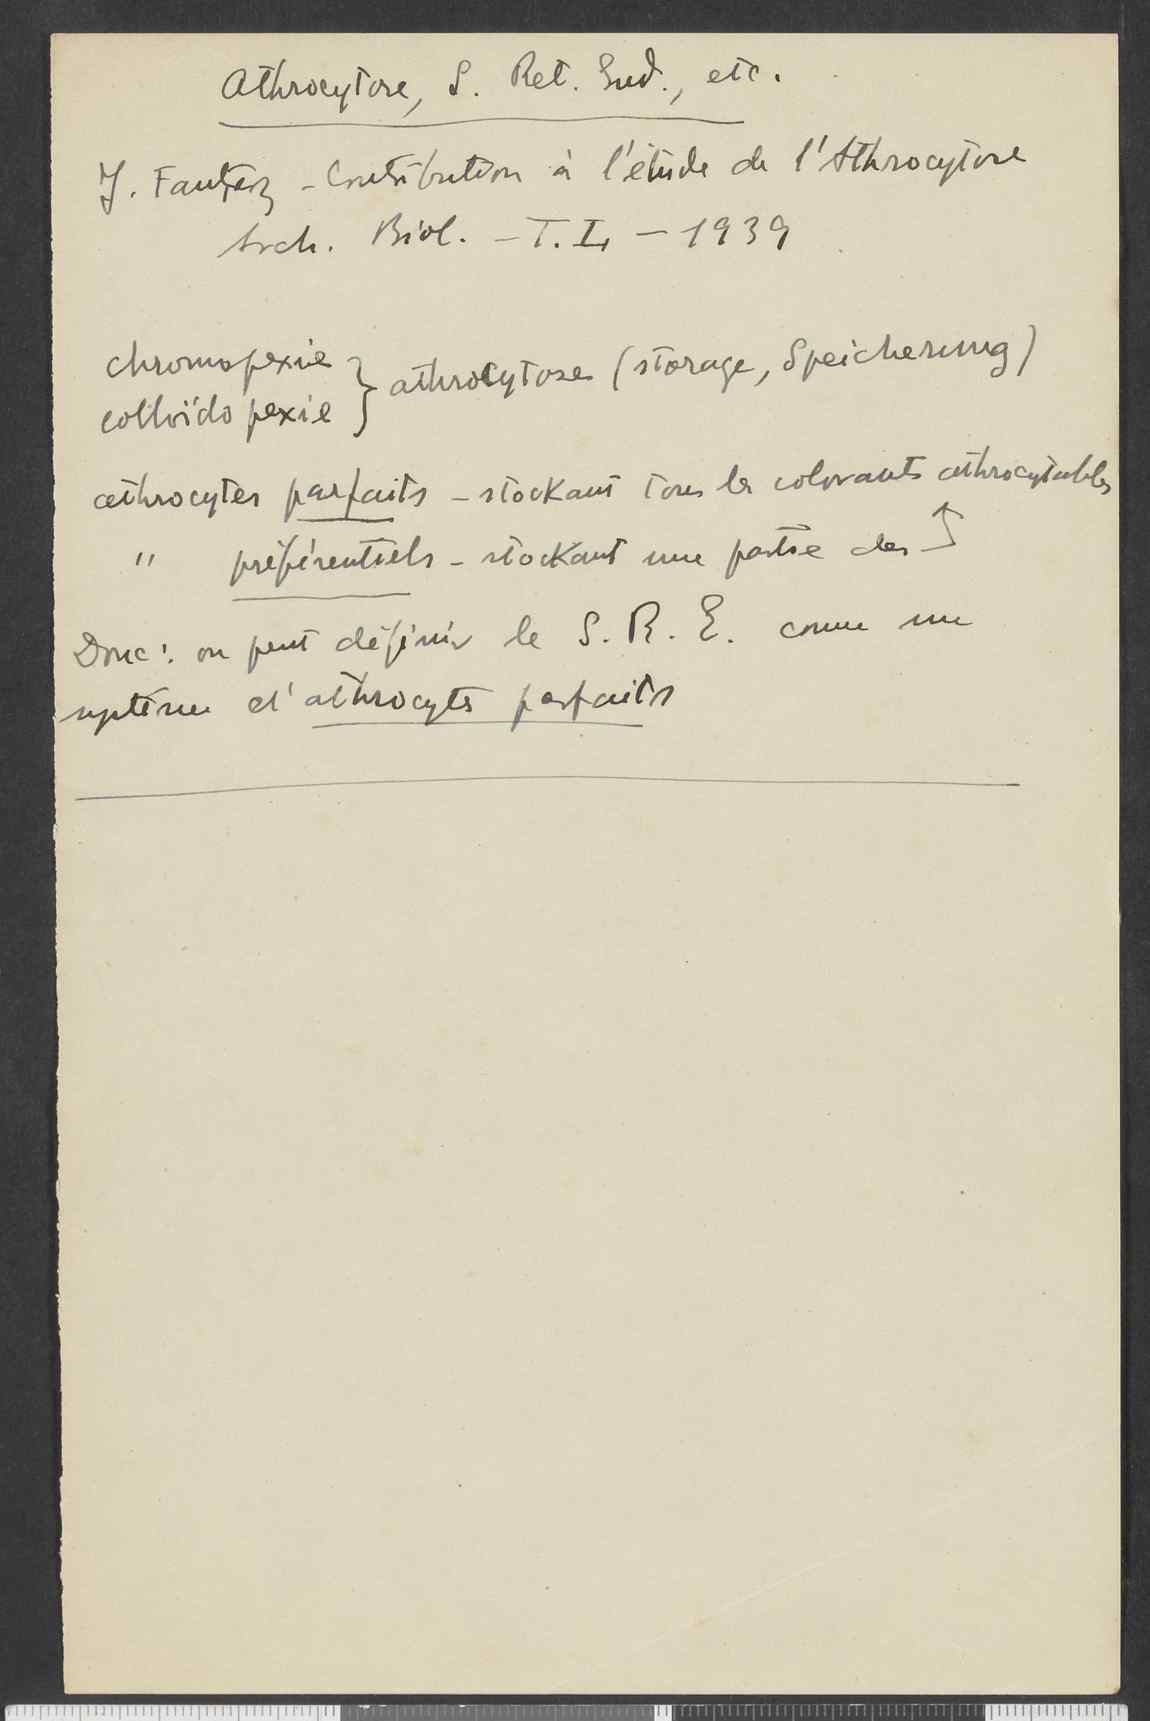 Athrocytose, S. Ret. End., etc.
J. Fautrez - Contribution à l'étude de l'Athrocytose
Arch. Biol. - T. L, - 1939
chromopexie
colloïdo pexie } athrocytose (storage, Speicherung)
athrocytes parfaits - stockant tous les colorants athrocytables
" préférentiels - stockant une partie des ↑
Donc : on peut définir le S. R. E. comme un
système d'athrocytes parfaits